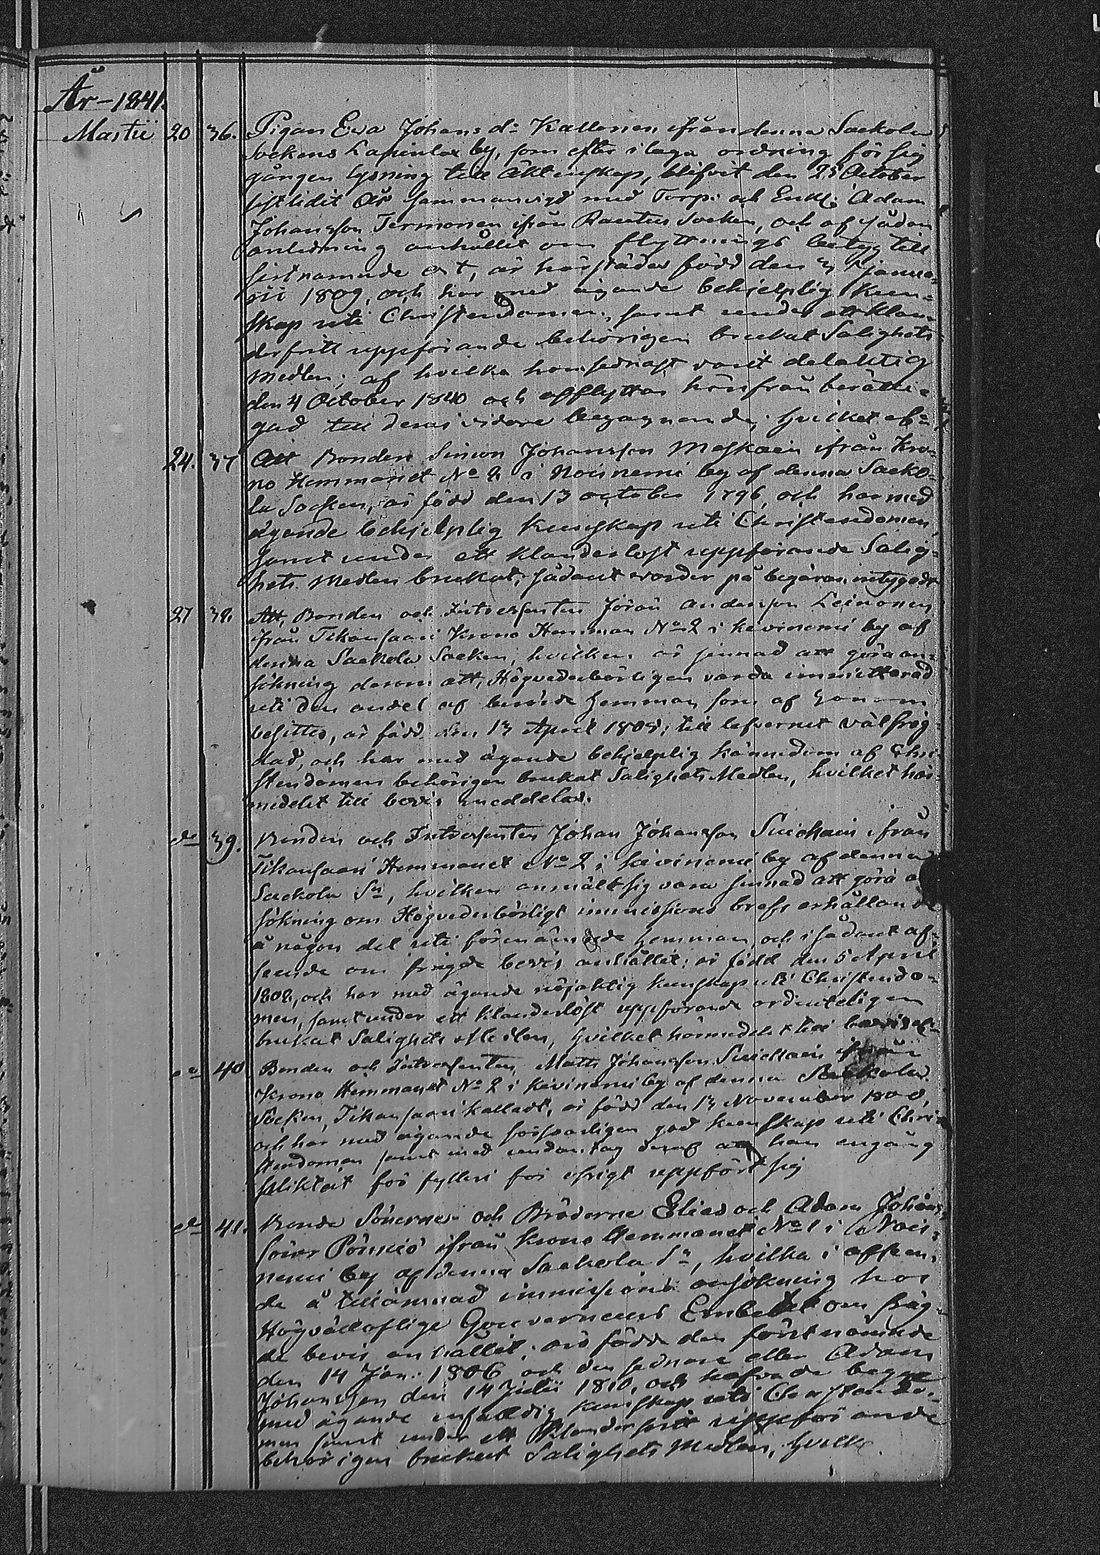 År 1841.
Martii 20 36. Pigan Eva Johans dr Kallonen ifrån denna Sackola
Sockens Lapinlax by, som efter i laga ordning för sig
gången lysning till Äktenskap, blifvit den 25 October
sistlidit År sammanvigd med Torp. och Enkl. Adam
Johansson Termonen ifrån Rautus Socken, och af sådan
anledning anhållit om flyttnings betyg till
sistnämnde ort, är härstädes född den Janua-
rii 1809, och har med ägande behjelplig kun-
skap uti Christendomen, samt under ett klan-
derfritt uppförande behörigen brukat Salighets
Medlen; af hvilka hon sednast varit delaktig
den 4 October 1840 och afflyttar härifrån berätti-
gad till deras vidare begagnande. Hvilket
24. 37 Att Bonden Simon Johansson Meskain ifrån Kro-
no Hemmanet No 2 i Noisnemi by af denna Sacko-
la Socken, är född den 13 october 1796, och har med
ägande behjelplig kunskap uti Christendomen,
samt under ett klanderlöst uppförande Salig-
hets Medlen brukat; sådant varder på begäran intygadt
27 38. Att Bonden och Intressenten Jöran Andersson Leinonen
ifrån Tikansaari Krono Hemman No 2 i Kevinemi by af
denna Sackola Socken, hvilken är sinnad att göra an-
sökning derom att, Högvederbörligen varda immitterad
uti den andel af berörde Hemman som af honom
besittes, är född den 13 April 1808; till lefvernet välfrej-
dad, och har med ägande behjelplig kännedom af Chri-
stendomen behörigen brukat Salighets Medlen, hvilket här-
medelst till bevis meddelas.
do 39. Bonden och Intressenten Johan Johansson Suikain ifrån
Tikansaari Hemmanet No 2 i Kevinemi by af denna
Sackola Sn, hvilken anmält sig vara sinnad att göra
sökning om Högvederbörligt immissions brefs erhållande
å någon del uti förenämnde Hemman, och i sådant af-
seende om frejde bevis anhållit; är född den 5 April
1808, och har med ägande nöjaktig kunskap uti Christendo-
men, samt under ett klanderlöst uppförande ordenteligen
brukat Salighets Medlen, Hvilket härmedelst till
do 40 Bonden och Intressenten Matts Johansson Suikain ifrån
Krono Hemmanet No 2 i Kevinemi by af denna Sackola
Socken, Tikansaari kalladt, är född den 13 November 1800,
och har med ägande försvarligen god kunskap uti Chri-
stendomen samt med undantag deraf att han en gång
pliktat för fylleri för öfrigt uppfört sig
do 41. Bonde Sönerne och Bröderne Elias och Adam Johans
söner Pönniö ifrån Krono Hemmanet No 1 i Nois-
nemi by af denna Sackola Sn, hvilka i afseen-
de å tillämnad immissions ansökning hos
Högvällofliga Gouverneurs Embetet om fräg-
de bevis anhållit, äro födde den förstnämnde
den 14 Jan. 1806 och den sednare eller Adam
Johansson den 14 Julii 1810, och hafva de begge
med ägande enfaldig kunskap uti Christendo-
men samt under ett klanderfritt uppförande
behörigen brukat Salighets Medlen, Hvilk